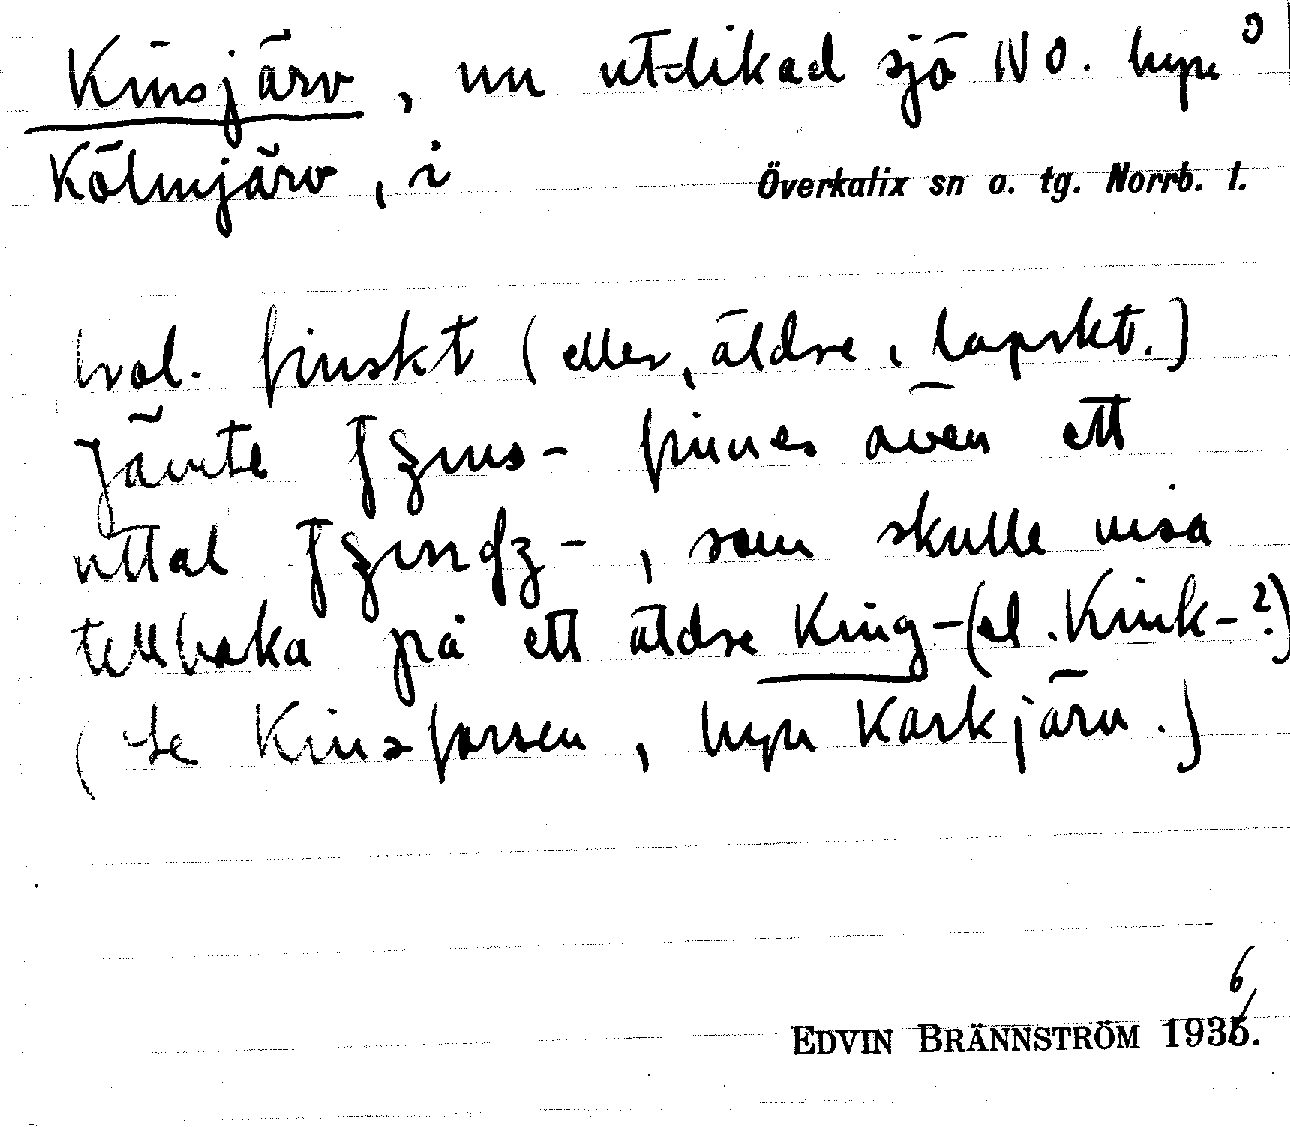 Kinsjärv, nu utdikad sjö NO. hyn
Kölmjärv, i Överkalix sn o. tg. Norrb. l.
trol. finskt (eller, äldre, lapskt.)
Jämte finnes även ett
uttal , som skulle visa
tillbaka på ett äldre King-(el. Kink-?)
(se Kinsforsen, hyn Karkjärv.)
6
EDVIN BRÄNNSTRÖM 1935.